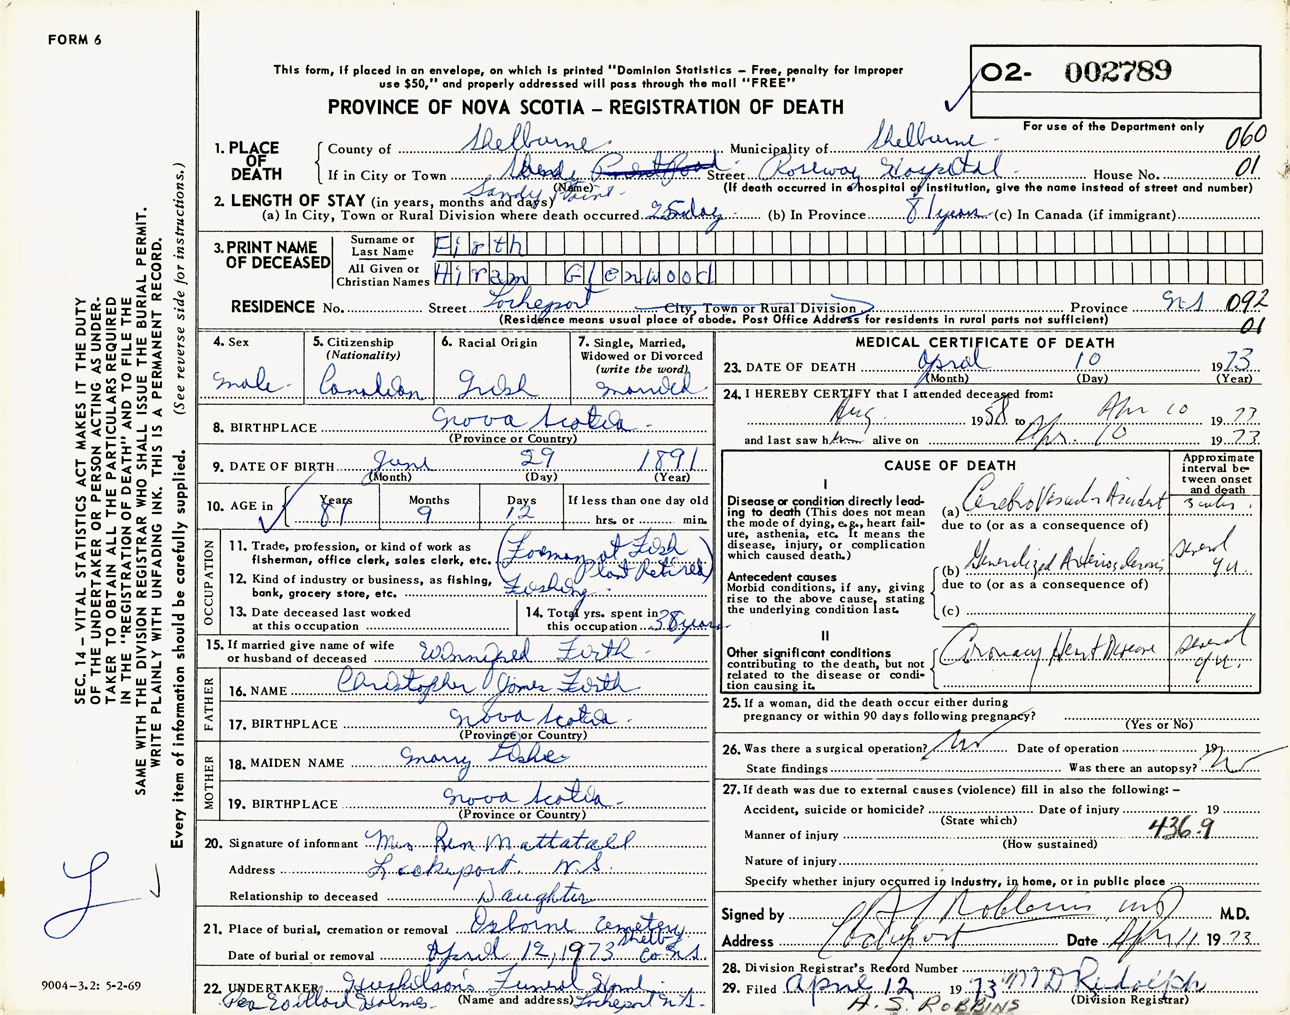 FORM 6
This form, if placed in an envelope, on which is printed "Dominion Statistics – Free, penalty for improper
use $50," and properly addressed will pass through the mail "FREE"
PROVINCE OF NOVA SCOTIA – REGISTRATION OF DEATH
O2- 002789
For use of the Department only
060
01
1. PLACE OF DEATH
County of Shelburne Municipality of Shelburne
If in City or Town Sandy Point Street Roseway Hospital House No.
(Name) (If death occurred in a hospital of institution, give the name instead of street and number)
2. LENGTH OF STAY (in years, months and days)
(a) In City, Town or Rural Division where death occurred 25 day (b) In Province 81 years (c) In Canada (if immigrant)
3. PRINT NAME OF DECEASED
Surname or Last Name Firth
All Given or Christian Names Hiram Glenwood
RESIDENCE No. Street Lockeport City, Town or Rural Division Province N.S 092
01
(Residence means usual place of abode. Post Office Address for residents in rural parts not sufficient)
4. Sex
Male
5. Citizenship
(Nationality)
Canadian
6. Racial Origin
Irish
7. Single, Married,
Widowed or Divorced
(write the word)
Married
8. BIRTHPLACE Nova Scotia
(Province or Country)
9. DATE OF BIRTH June 29 1891
(Month) (Day) (Year)
10. AGE in Years 81 Months 9 Days 12 If less than one day old
hrs. or min.
OCCUPATION
11. Trade, profession, or kind of work as
fisherman, office clerk, sales clerk, etc. (Foreman at Fish
Plant Retired)
12. Kind of industry or business, as fishing,
bank, grocery store, etc. Fishing
13. Date deceased last worked
at this occupation
14. Total yrs. spent in
this occupation 38 years
15. If married give name of wife
or husband of deceased Winnifred Firth
FATHER
16. NAME Christopher James Firth
17. BIRTHPLACE Nova Scotia
(Province or Country)
MOTHER
18. MAIDEN NAME Marry
19. BIRTHPLACE Nova Scotia
(Province or Country)
20. Signature of informant Mrs Ken Mattatall
Address Lockeport. N.S.
Relationship to deceased Daughter
21. Place of burial, cremation or removal Osborne Cemetery
Shelb.
Date of burial or removal April 12, 1973 Co N.S.
22. UNDERTAKER Huskilson's Funeral Home
Per Willard Holmes. (Name and address) Lockeport N.S.
MEDICAL CERTIFICATE OF DEATH
23. DATE OF DEATH April 10 1973
(Month) (Day) (Year)
24. I HEREBY CERTIFY that I attended deceased from:
Aug. 1958 to Apr 10 1973
and last saw him alive on Apr. 10 1973
CAUSE OF DEATH
Approximate
interval be-
tween onset
and death
I
Disease or condition directly lead-
ing to death (This does not mean
the mode of dying, e.g., heart fail-
ure, asthenia, etc. It means the
disease, injury, or complication
which caused death.)
(a) Cerebro Vascular Accident 3 wks.
due to (or as a consequence of)
Antecedent causes
Morbid conditions, if any, giving
rise to the above cause, stating
the underlying condition last.
(b) Generalized Arteriosclerosis several yrs.
due to (or as a consequence of)
(c)
II
Other significant conditions
contributing to the death, but not
related to the disease or condi-
tion causing it.
Coronary Heart Disease several yrs.
25. If a woman, did the death occur either during
pregnancy or within 90 days following pregnancy?
(Yes or No)
26. Was there a surgical operation? No Date of operation 19
State findings Was there an autopsy? No
27. If death was due to external causes (violence) fill in also the following: –
Accident, suicide or homicide? Date of injury 19
(State which)
Manner of injury 436.9
(How sustained)
Nature of injury
Specify whether injury occurred in industry, in home, or in public place
Signed by A S Robbins MD M.D.
Address Lockeport Date Apr 11 1973
28. Division Registrar's Record Number
29. Filed April 12 1973 M D Rudolph
(Division Registrar)
A. S. ROBBINS
SEC. 14 – VITAL STATISTICS ACT MAKES IT THE DUTY
OF THE UNDERTAKER OR PERSON ACTING AS UNDER-
TAKER TO OBTAIN ALL THE PARTICULARS REQUIRED
IN THE "REGISTRATION OF DEATH" AND TO FILE THE
SAME WITH THE DIVISION REGISTRAR WHO SHALL ISSUE THE BURIAL PERMIT.
WRITE PLAINLY WITH UNFADING INK. THIS IS A PERMANENT RECORD.
Every item of information should be carefully supplied. (See reverse side for instructions.)
9004-3.2: 5-2-69